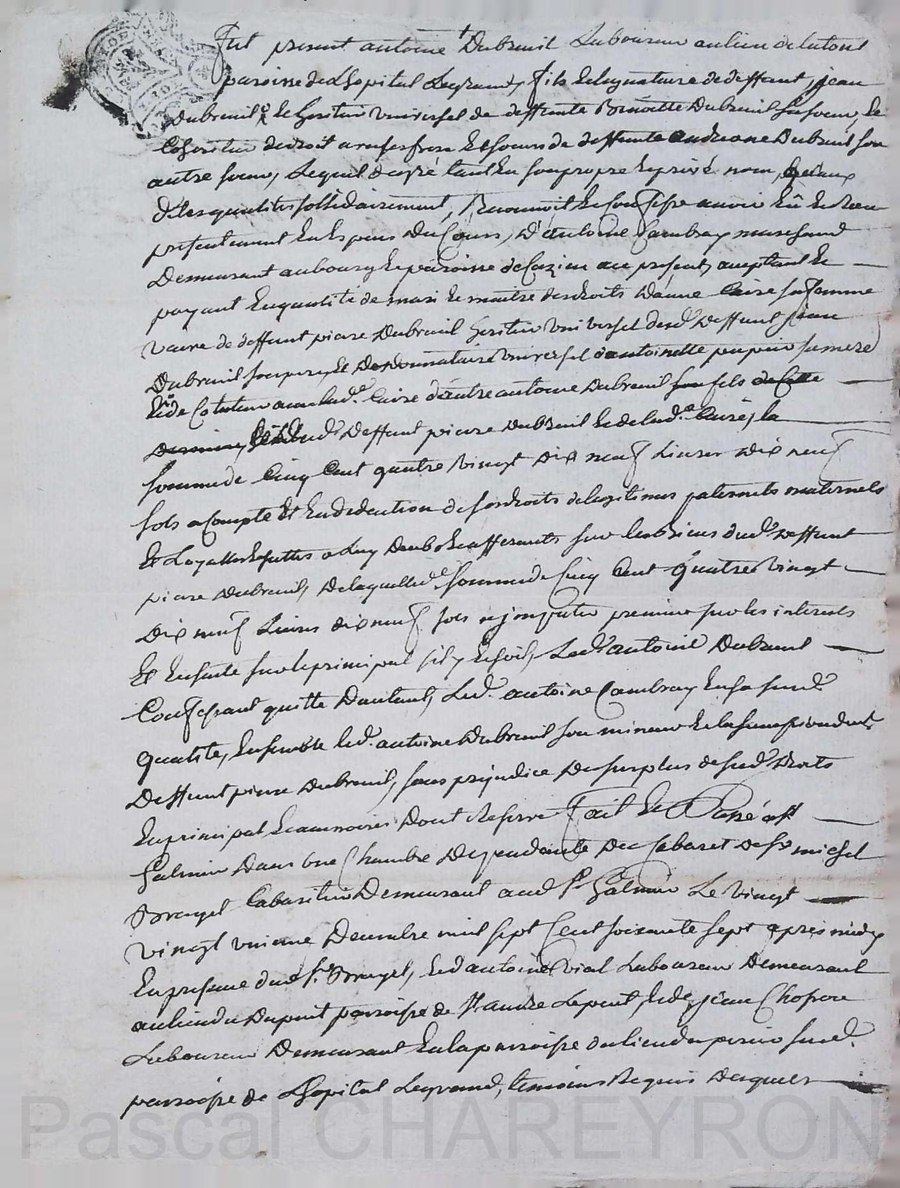 fut present antoine Dubreuil Laboureur au lieu de latout
paroisse de Lhopital Legrand, fils Legataire de deffunt, jean
Dubreuil & heritier universel de deffunte Benoitte Dubreuil sa soeur, Et
Coheritier de droit a ses frere Et soeurs de deffunte andreane Dubreuil son
autre soeur, Lequel de gré tant En son propre Et privé nom, que aux
dites qualités sollidairement, Reconnoit Et confesse avoir Eû Et Receu
presentement En Especes Du Cours, D'antoine Cambray marchand
Demeurant au bourg Et paroisse de Cuzieu au present, aceptant Et
payant En qualité de mari Et maitre des droits D'anne Caire sa femme
veuve de deffunt piere Dubreuil heritier universel dud. Deffunt jean
Dubreuil son pere, Et Donnataire universel d'antoinette pupier sa mere
Et de Cotuteur avec lad. Caire d'autre antoine Dubreuil fils
dud. Deffunt piere Dubreuil Et de lad. Caire, la
somme de Cinq Cent quatre vingt Dix neuf Livres Dix neuf
sols a Compte Et En deduction de ses droits de legitimes paternels maternels
Et Legats a Luy Deubs Et afferants sur les biens dud. Deffunt
piere Dubreuil, De laquelle somme de Cinq Cent quatre vingt
Dix neuf Livres dix neuf sols a jmputer premierement sur les interests
Et Ensuite sur le principal s'il y Eschoit, Led. antoine Dubreuil
Confessant quitte Dautant, Led. antoine Cambray En sa susd.
qualité, Ensemble led. antoine Dubreuil son mineur Et la succession dud.
Deffunt piere Dubreuil, sans prejudice Du surplus de sesd. Droits
En principal Et accessoires Dont Reserve fait Et Passé a st
Galmier Dans une Chambre Dependante Du Cabaret de sr. michel
Bruyel Cabaretier Demeurant aud. St. Galmier Le vingt
vingt unieme Decembre mil sept Cent soixante sept apres midy
En presence dud. sr. Bruyel, Et d'antoine vial Laboureur Demeurant
au lieu du Dupuit parroisse de St. andre Lepuit, Et de jean Chopere
Laboureur Demeurant En la parroisse du lieu du perier susd.
parroisse de Lhopital Legrand, temoins Requis Lesquels
Pascal CHAREYRON